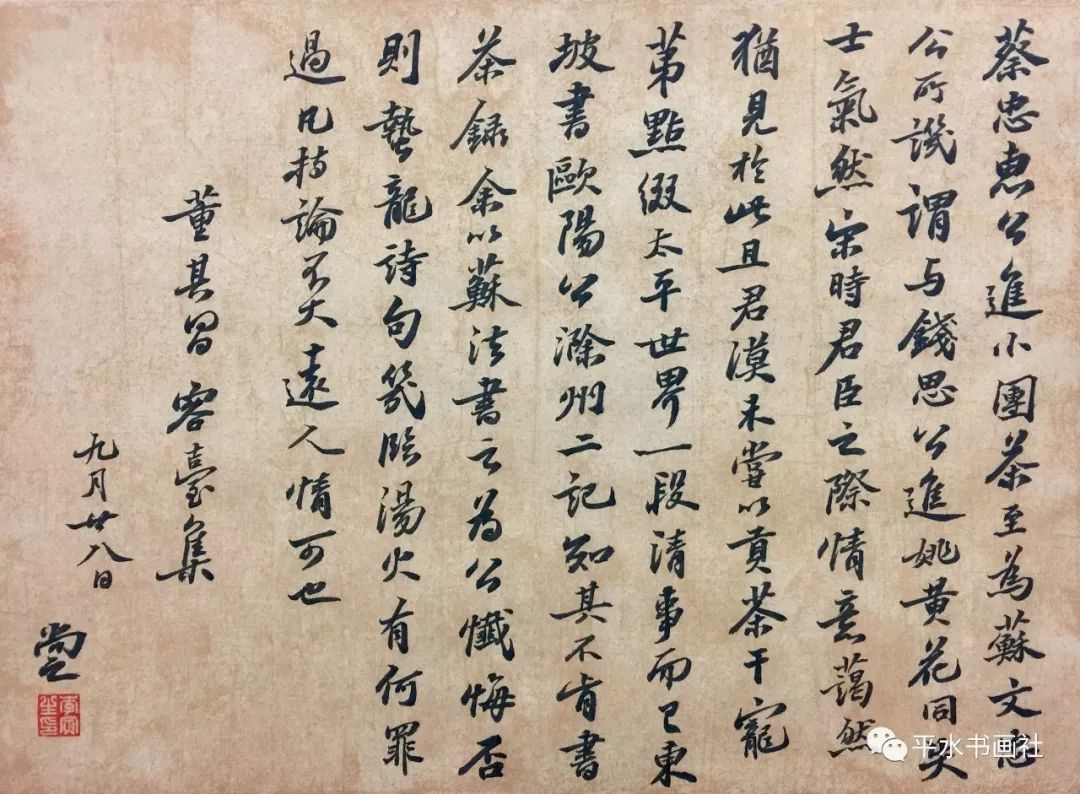 蔡忠惠公進小團茶至為蘇文忠
公所譏謂与錢思公進姚黃花同失
士氣然宋時君臣之際情意藹然
猶見於此且君謨未嘗以貢茶干寵
第點綴太平世界一段清事而已東
坡書歐陽公滁州二記知其不肯書
茶録余以蘇法書之為公懺悔否
則蟄龍詩句幾臨湯火有何罪
過凡持論不大遠人情可也
董其昌容臺集
九月廿八日
平水书画社